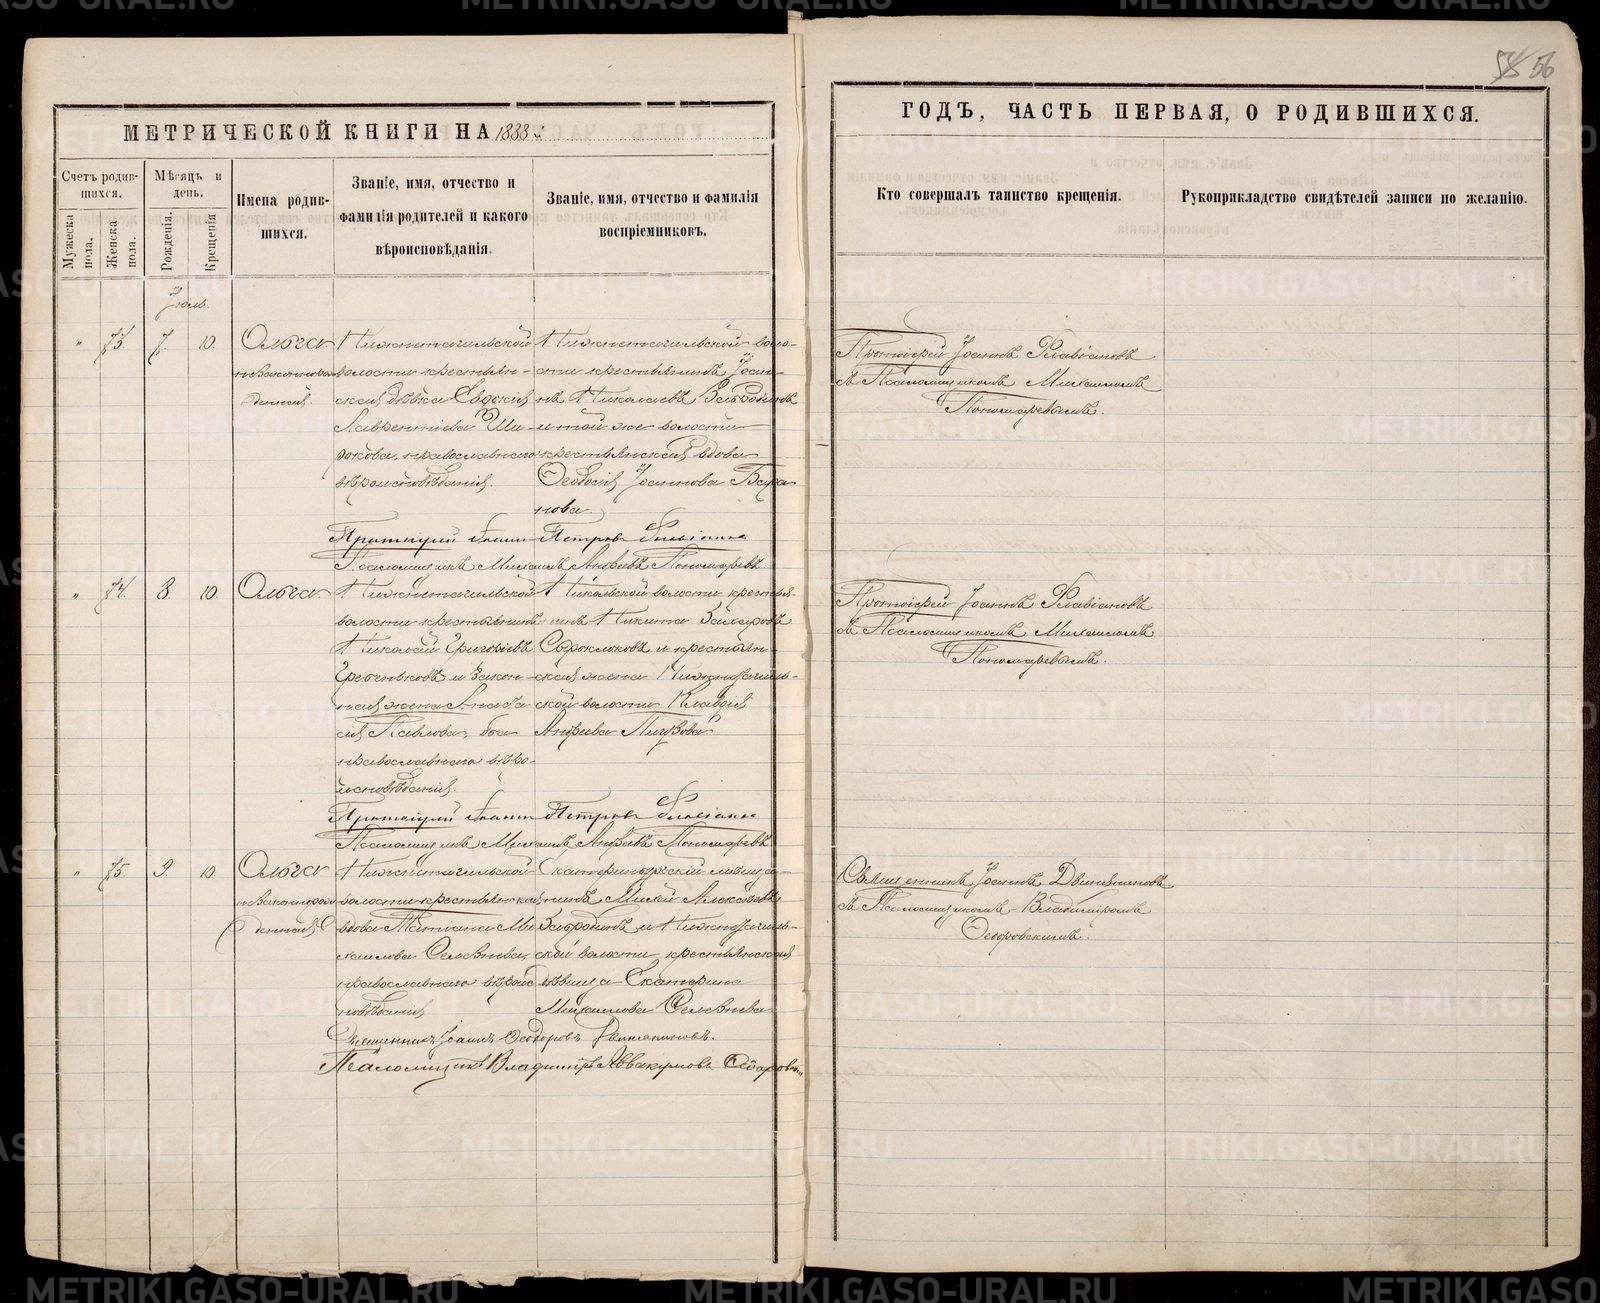 58 56
МЕТРИЧЕСКОЙ КНИГИ НА 1888 й
ГОДЪ, ЧАСТЬ ПЕРВАЯ, О РОДИВШИХСЯ.
Счетъ родив-
шихся.
Мужеска
пола.
Женска
пола.
Мѣсяцъ и
день.
Рожденія.
Крещенія
Имена родив-
шихся.
Званіе, имя, отчество и
фамилія родителей и какого
вѣроисповѣданія.
Званіе, имя, отчество и фамилія
воспріемниковъ.
Кто совершалъ таинство крещенія.
Рукоприкладство свидѣтелей записи по желанію.
Іюль.
" 73. 7. 10. Ольга
незаконнорож-
денная.
Нижнетагильской
волости крестьян-
ская дѣвка Евдокія
Лаврентіева Ши-
рокова, православнаго
вѣроисповѣданія.
Нижнетагильской воло-
сти крестьянинъ Іоан-
нъ Николаевъ Забродинъ
и той же волости
крестьянская вдова
Ѳеодосія Іоаннова Бара
нова.
Протоіерей Іоаннъ Флавіановъ
съ Псаломщикомъ Михаиломъ
Пономаревымъ.
Протоіерей Іоаннъ Петровъ Флавіановъ
Псаломщикъ Михаилъ Андреевъ Пономаревъ
" 74. 8. 10. Ольга.
Нижнетагильской
волости крестьянинъ
Николай Григоріевъ
Гребеньковъ и закон-
ная жена Анаста
сія Павлова, оба
православнаго вѣро-
исповѣданія.
Никольской волости крестья-
нинъ Никита Захаровъ
Сыроклоковъ и крестьян-
ская жена Нижнетагиль-
ской волости Клавдія
Андреева
Протоіерей Іоаннъ Флавіановъ
съ Псаломщикомъ Михаиломъ
Пономаревымъ.
Протоіерей Іоаннъ Петровъ Флавіановъ
Псаломщикъ Михаилъ Андреевъ Пономаревъ
" 75. 9. 10 Ольга
незаконнорож-
денная
Нижнетагильской
волости крестьянская
вдова Татіана Ми
хаилова Селезнева,
православнаго вѣроис
повѣданія
Екатеринбургскій мѣща-
нинъ Алексѣевъ
Забродинъ и Нижнетагиль-
ской волости крестьянская
дѣвица Екатерина
Михаилова Селезнева
Священникъ Іоаннъ Двиняниновъ
съ Псаломщикомъ Владиміромъ
Ѳедоровскимъ.
Священникъ Іоаннъ Ѳеодоровъ Двиняниновъ.
Псаломщикъ Владиміръ Аввакумовъ Ѳедоровскій